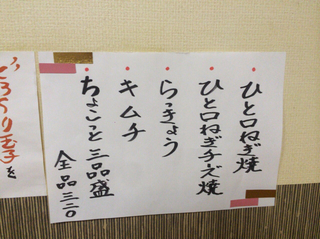 ひと口ねぎ焼
ひと口ねぎチーズ焼
らっきょう
キムチ
ちょこっと三品盛
全品三二〇
とろろり玉子を